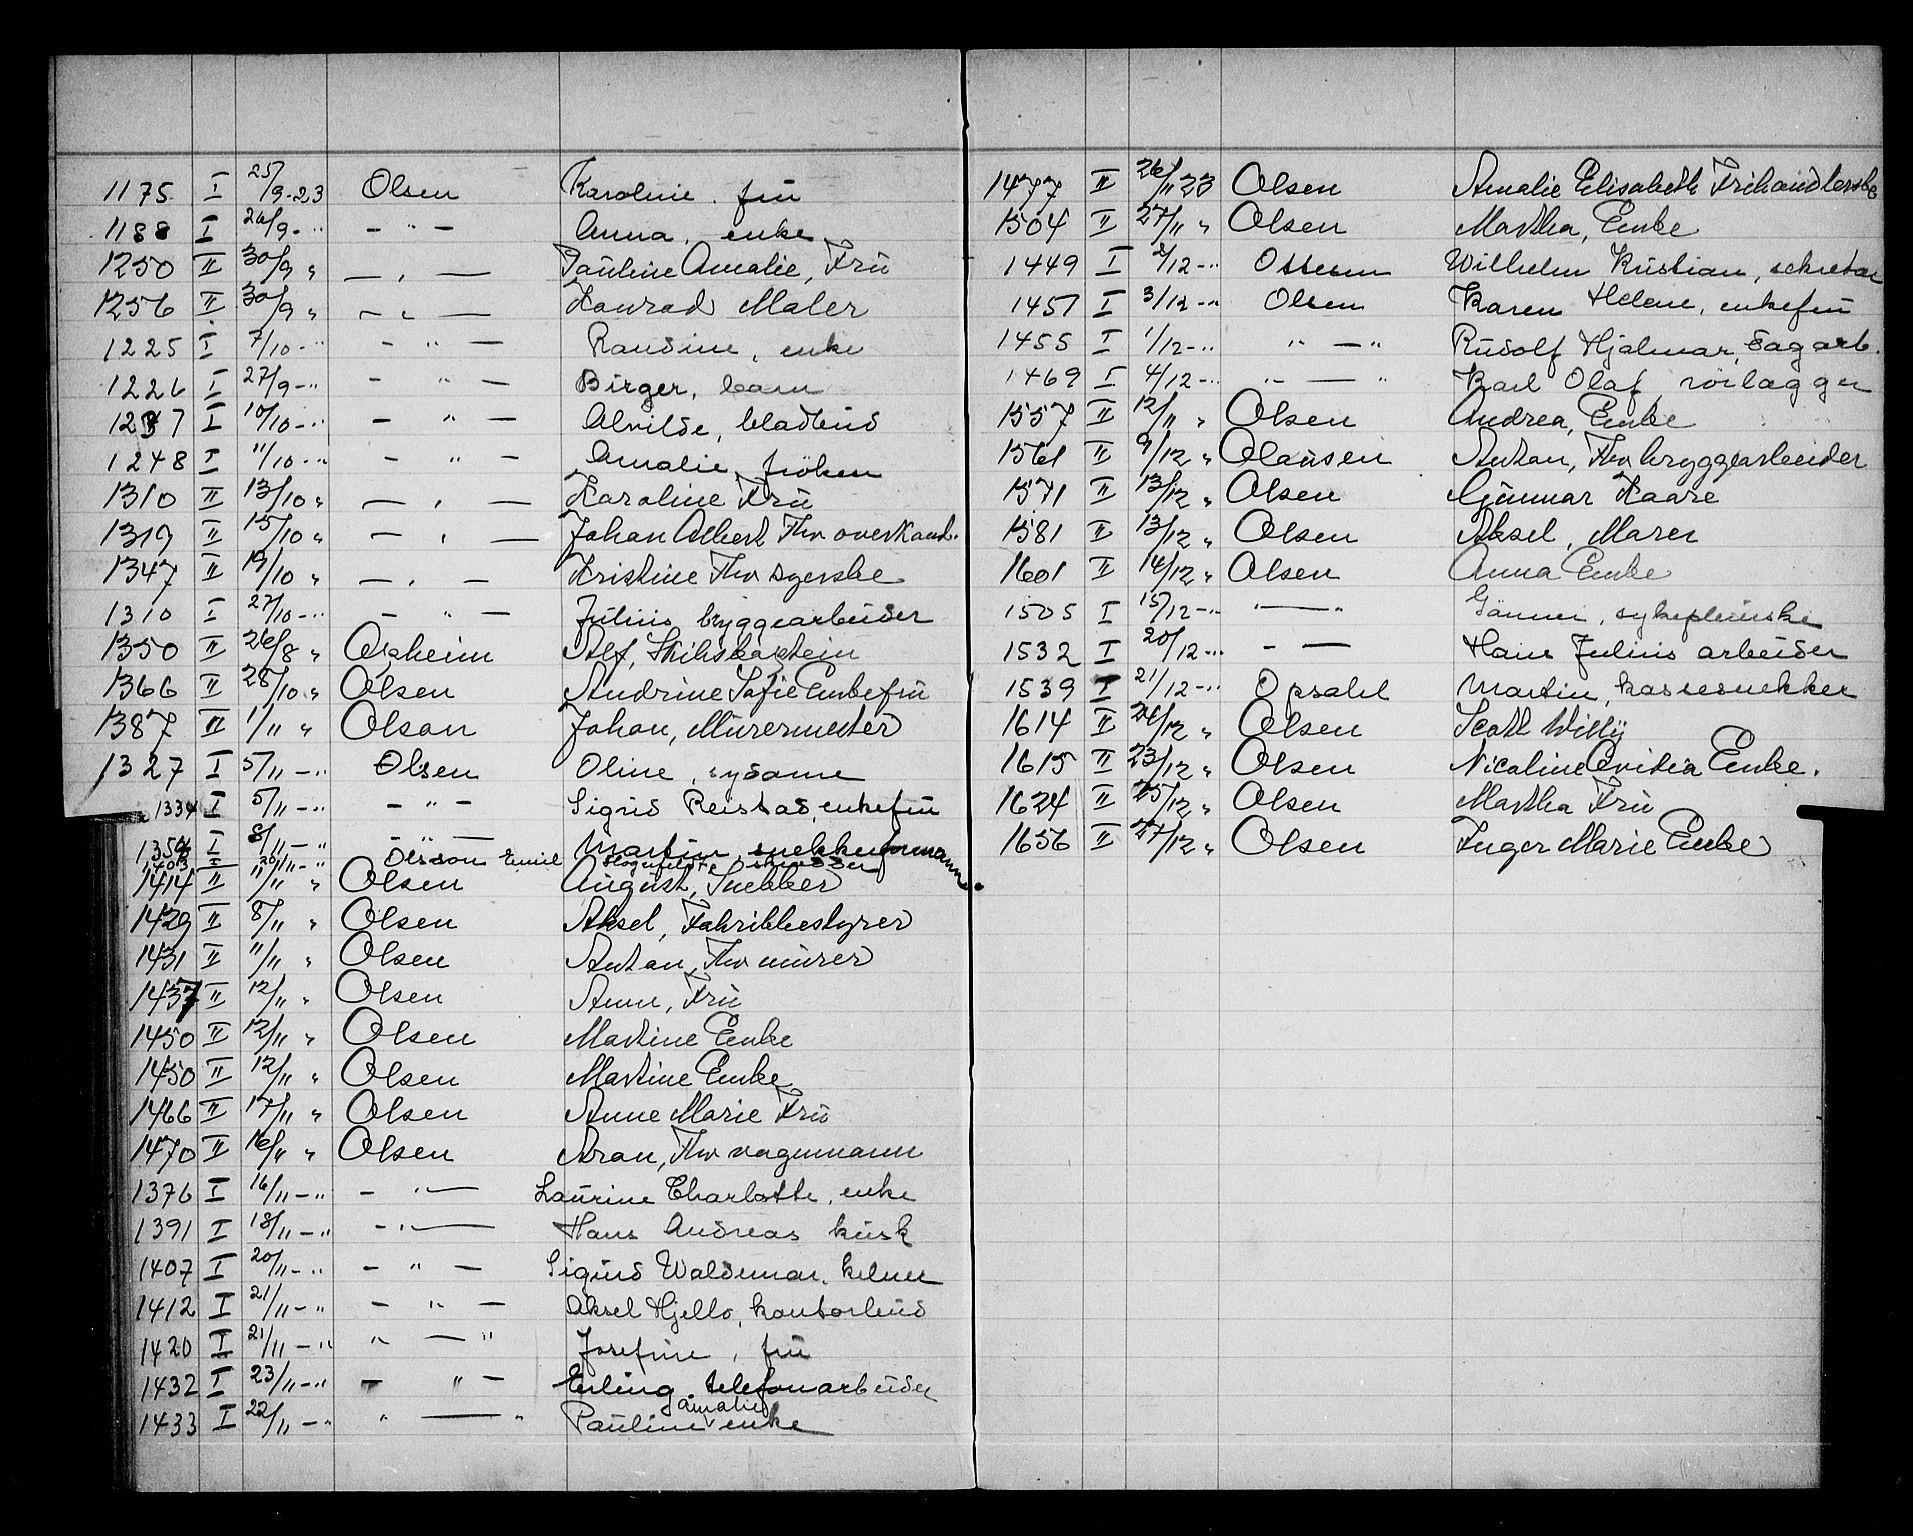 1175 I 25/9-23 Olsen Karoline, fru
1188 I 26/9-" - " - Anna, enke
1250 II 30/9 " — " — Pauline Amalie, Fru
1256 II 30/9 " — " — Konrad Maler
1225 I 7/10-" - " - Randine, enke
1226 I 27/9-" - " - Birger, barn
1237 I 10/10-" - " - Alvilde, bladbud
1248 I 11/10-" - " - Amalie, fröken
1310 II 13/10 " — " — Karoline Fru
1319 II 15/10 " — " — Johan Albert Fhv overkond.
1347 II 19/10 " — " — Kristine Fhv syerske
1310 I 27/10-" - " - Julius bryggearbeider
1350 II 26/8 " Alf, Skibskaptein
1366 II 28/10 " Olsen Andrine Sofie Enkefru
1387 II 1/11 " Olsen Johan, Murermester
1327 I 5/11-" Olsen Oline, sydame
1334 I 5/11-" - " - Sigrid Reistad, enkefru
1354 I 8/11-" - " — Martin snekkerformann
1403 I 20/11-" Olsson Emil skrædder
1414 II 11/11 " Olsen August, Snekker
1429 II 8/11 " Olsen Aksel, Fabrikbestyrer
1431 II 11/11 " Olsen Anton, Fhv murer
1437 II 12/11 " Olsen Anne, Fru
1450 II 12/11 " Olsen Martine Enke
1450 II 12/11 " Olsen Martine Enke
1466 II 17/11 " Olsen Anne Marie Fru
1470 II 16/11 " Olsen Aron, Fhv vognmann
1376 I 16/11-" - " — Laurine Charlotte, enke
1391 I 18/11-" - " — Hans Andreas kusk
1407 I 20/11-" - " - Sigurd Waldemar, kelner
1412 I 21/11-" - " - Aksel Hjello, kontorbud
1420 I 21/11-" " — " Josefine, fru
1432 I 23/11-" - " - Erling, telefonarbeider
1433 I 22/11-" " — " Pauline Amalie enke
1477 II 26/11 23 Olsen Amalie Elisabeth Frihandlerske
1504 II 27/11 " Olsen Martha, Enke
1449 I 2/12-" Ottesen Wilhelm Kristian, sekretær
1457 I 3/12-" Olsen Karen Helene, enkefru
1455 I 1/12-" " — " Rudolf Hjalmar, sagarb.
1469 I 4/12-" " — " Karl Olaf, rörlægger
1557 II 12/11 " Olsen Andrea, Enke
1561 II 9/12 " Olausen Anton, Fhv bryggearbeider
1571 II 13/12 " Olsen Gunnar Kaare
1581 II 13/12 " Olsen Aksel, Murer
1601 II 14/12 " Olsen Anna Enke
1505 I 15/12-" " — " sykepleierske
1532 I 20/12-" - — Hans Julius arbeider
1539 I 21/12-" Opsahl Martin, kassesnekker
1614 II 24/12 " Olsen Scott Willy
1615 II 23/12 " Olsen Nicoline Ovidia Enke.
1624 II 25/12 " Olsen Martha Fru
1656 II 27/12 " Olsen Inger Marie Enke